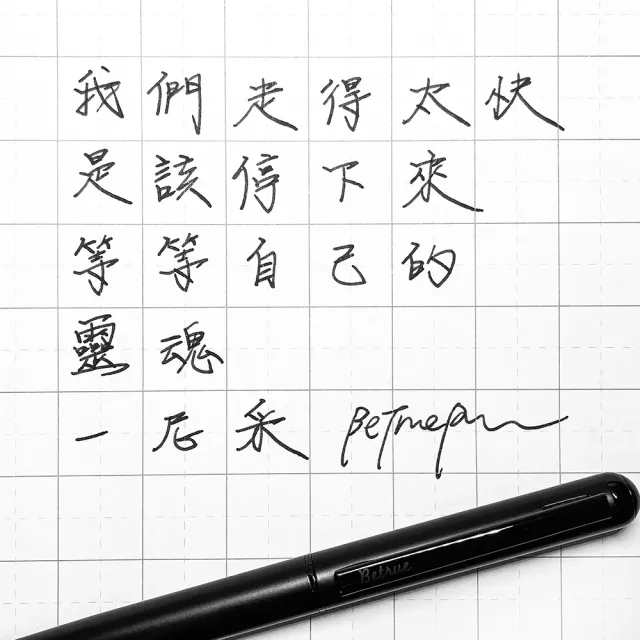 我們走得太快
是該停下來
等等自己的
靈魂
一尼采
Betrue